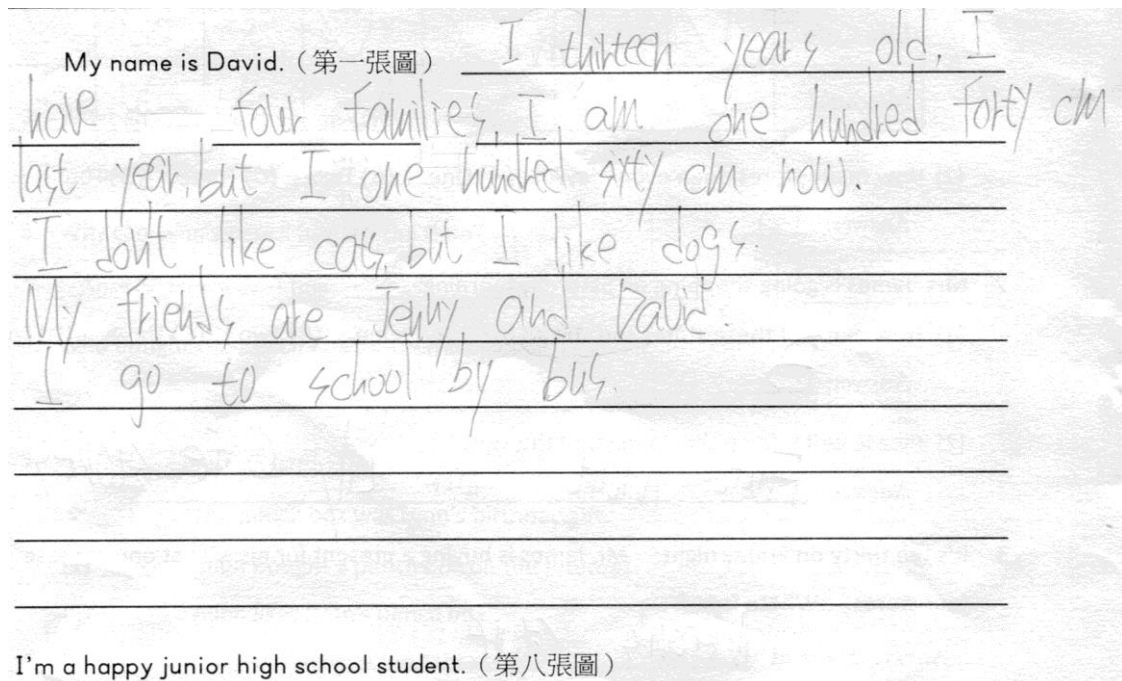 My name is David.（第一張圖） I thirteen years old. I
have four families. I am one hundred forty cm
last year, but I one hundred sixty cm now.
I don't like cats, but I like dogs.
My friends are Jenny and David.
I go to school by bus.
I'm a happy junior high school student.（第八張圖）